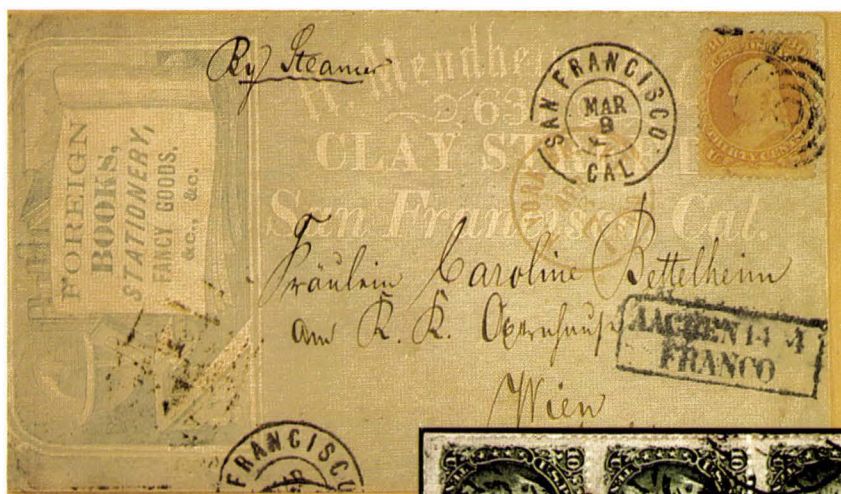 By Steamer
Mendhe
263
CLAY ST
San Francisco Cal.
FOREIGN
BOOKS,
STATIONERY,
FANCY GOODS.
&c., &c.
SAN FRANCISCO
MAR
CAL
30 30
THIRTY CENTS
Fräulein Caroline Bettelheim
am K. K. Opernhause
Wien
AACHEN 14 4
FRANCO
FRANCISCO